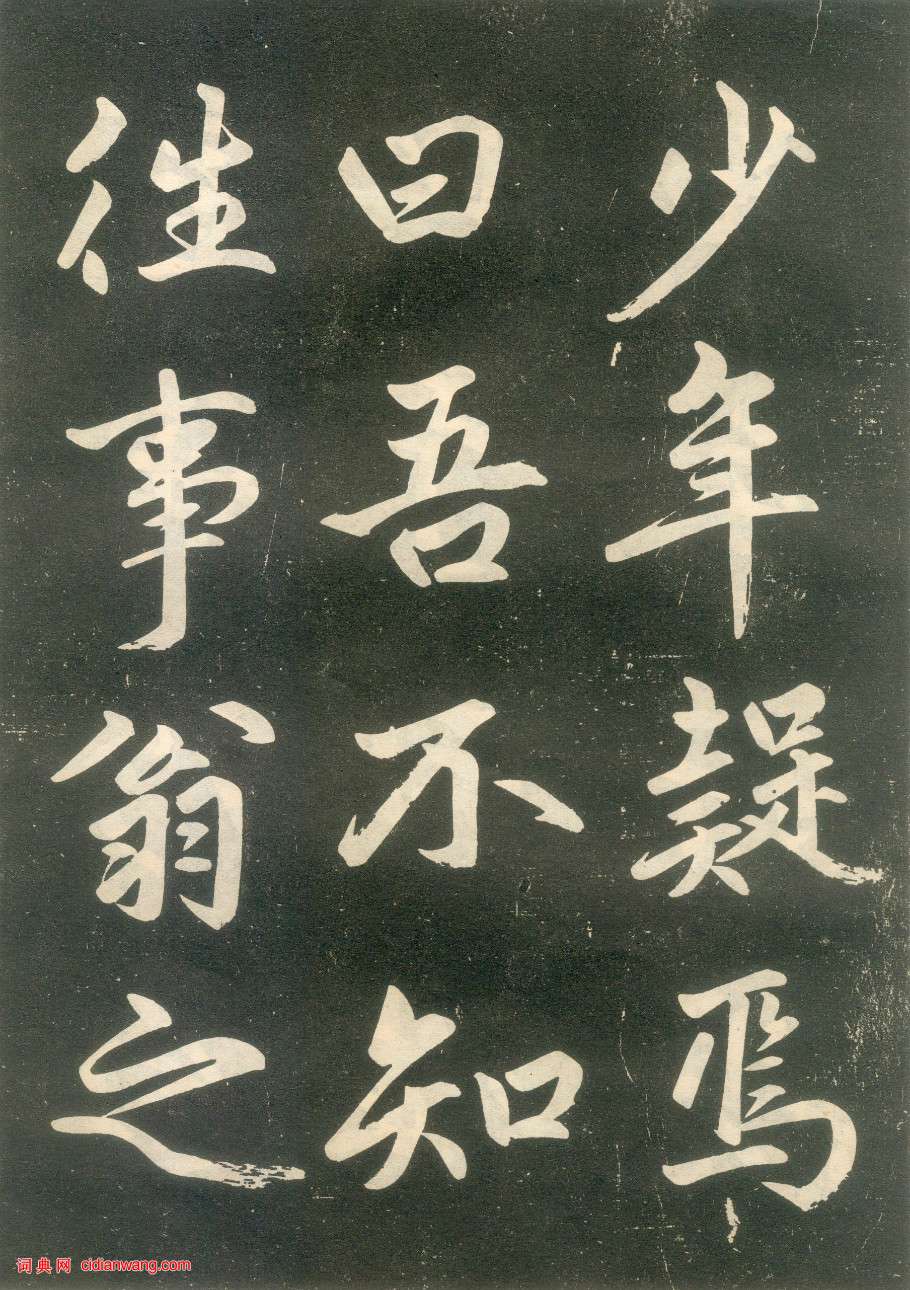 少年疑焉
曰吾不知
往事翁之
词典网 cidianwang.com